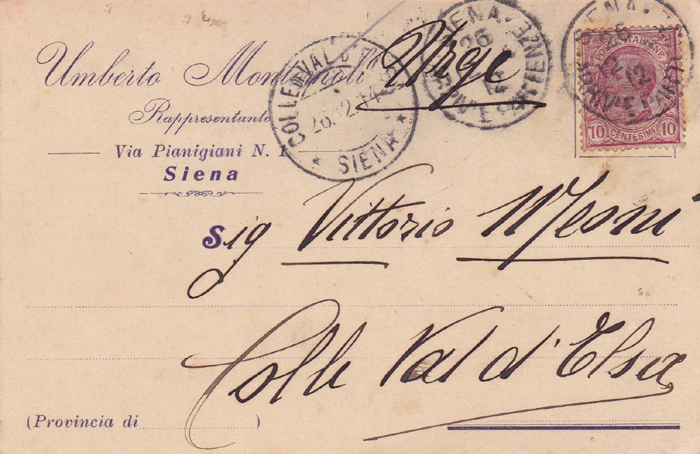 Umberto
Rappresentante
Via Pianigiani N. 1
Siena
Urge
COLLE D'VAL D'
26.12.14
SIENA
SIENA
26
ARRIVI E PARTENZE
SIENA
26
12
10 CENTESIMI 10
Sig Vittorio Meoni
Colle Val d'Elsa
(Provincia di )